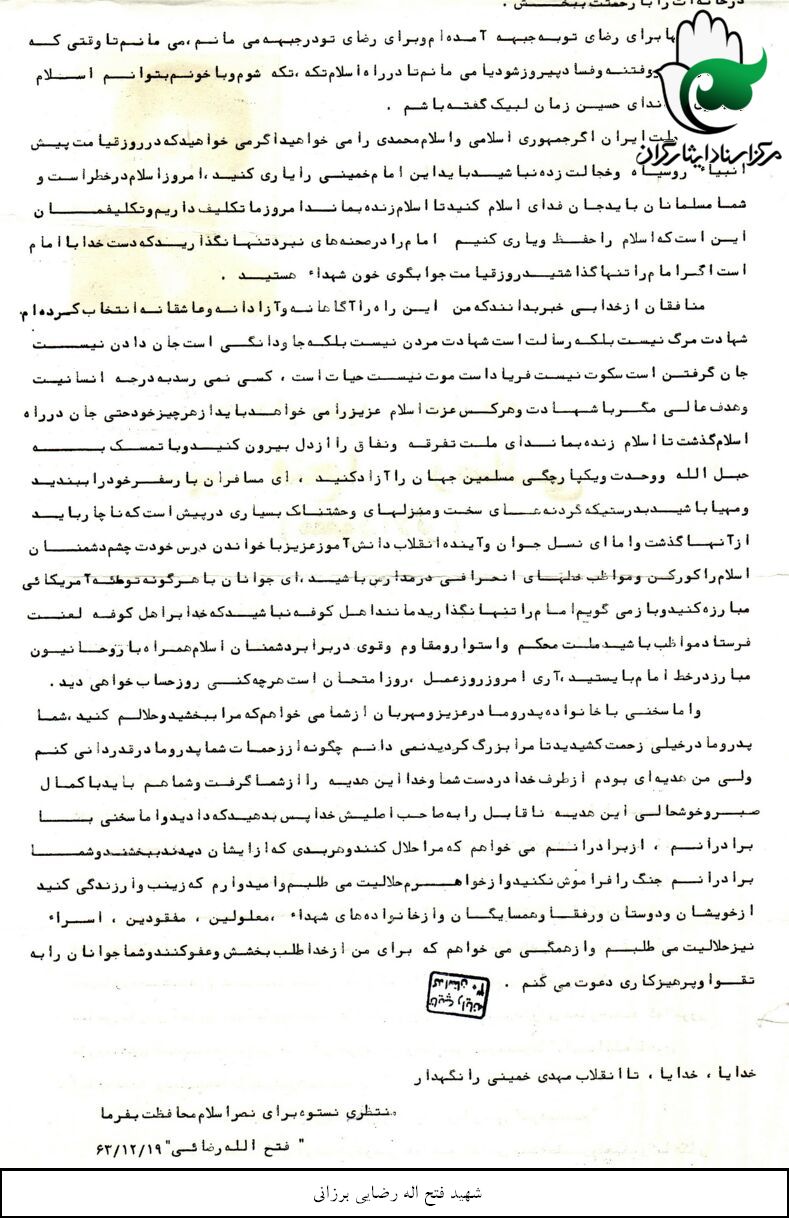 درخانه‌ات را با رحمتت ببخش .
برای رضای تو به جبهه آمده‌ام و برای رضای تو در جبهه می مانم ، می مانم تا وقتی که
وفتنه و فساد پیروز شود یا می مانم تا در راه اسلام تکه ، تکه شوم و با خونم بتوانم اسلام
ندای حسین زمان لبیک گفته باشم .
ملت ایران اگر جمهوری اسلامی و اسلام محمدی را می خواهید اگر می خواهید که در روز قیامت پیش
انبیاء روسیاه و خجالت زده نباشید باید این امام خمینی را یاری کنید ، امروز اسلام در خطر است و
شما مسلمانان باید جان فدای اسلام کنید تا اسلام زنده بماند امروز ما تکلیف داریم و تکلیفمان
این است که اسلام را حفظ و یاری کنیم امام را در صحنه های نبرد تنها نگذارید که دست خدا با امام
است اگر امام را تنها گذاشتید روز قیامت جوابگوی خون شهداء هستید .
منافقان از خدا بی خبر بدانند که من این راه را آگاهانه و آزادانه و عاشقانه انتخاب کرده ام
شهادت مرگ نیست بلکه رسالت است شهادت مردن نیست بلکه جاودانگی است جان دادن نیست
جان گرفتن است سکوت نیست فریاد است موت نیست حیات است ، کسی نمی رسد به درجه انسانیت
و هدف عالی مگر با شهادت و هر کس عزت اسلام عزیز را می خواهد باید از هر چیز خود حتی جان در راه
اسلام گذشت تا اسلام زنده بماند ای ملت تفرقه و نفاق را از دل بیرون کنید و با تمسک به
حبل الله و وحدت و یکپارچگی مسلمین جهان را آزاد کنید ، ای مسافران بار سفر خود را ببندید
و مهیا باشید بدرستیکه گردنه های سخت و منزلهای وحشتناک بسیاری در پیش است که ناچار باید
از آنها گذشت و اما ای نسل جوان و آینده انقلاب دانش آموز عزیز با خواندن درس خودت چشم دشمنان
اسلام را کور کن و مواظب خطهای انحرافی در مدارس باشید ، ای جوانان با هر گونه توطئه آمریکائی
مبارزه کنید و باز می گویم امام را تنها نگذارید مانند اهل کوفه نباشید که خدا بر اهل کوفه لعنت
فرستاد مواظب باشید ملت محکم و استوار و مقاوم و قوی در برابر دشمنان اسلام همراه با روحانیون
مبارز در خط امام بایستید ، آری امروز روز عمل ، روز امتحان است هر چه کنی روز حساب خواهی دید .
و اما سخنی با خانواده پدر و مادر عزیز و مهربان از شما می خواهم که مرا ببخشید و حلالم کنید ، شما
پدر و مادر خیلی زحمت کشیدید تا مرا بزرگ کردید نمی دانم چگونه از زحمات شما پدر و مادر قدردانی کنم
ولی من هدیه ای بودم از طرف خدا در دست شما و خدا این هدیه را از شما گرفت و شما هم باید با کمال
صبر و خوشحالی این هدیه ناقابل را به صاحب اصلیش خدا پس بدهید که دادید و اما سخنی با
برادرانم ، از برادرانم می خواهم که مرا حلال کنند و هر بدی که از ایشان دیدند ببخشند و شما
برادرانم جنگ را فراموش نکنید و از خواهرم حلالیت می طلبم و امیدوارم که زینب وار زندگی کنید
از خویشان و دوستان و رفقا و همسایگان و از خانواده های شهداء ، معلولین ، مفقودین ، اسراء
نیز حلالیت می طلبم و از همگی می خواهم که برای من از خدا طلب بخشش و عفو کنند و شما جوانان را به
تقوا و پرهیزکاری دعوت می کنم .
خدایا ، خدایا ، تا انقلاب مهدی خمینی را نگهدار
منتظری نستوه برای نصر اسلام محافظت بفرما
" فتح الله رضائی " ۶۳/۱۲/۱۹
مرکز اسناد ایثارگران
شهید فتح اله رضایی برزانی